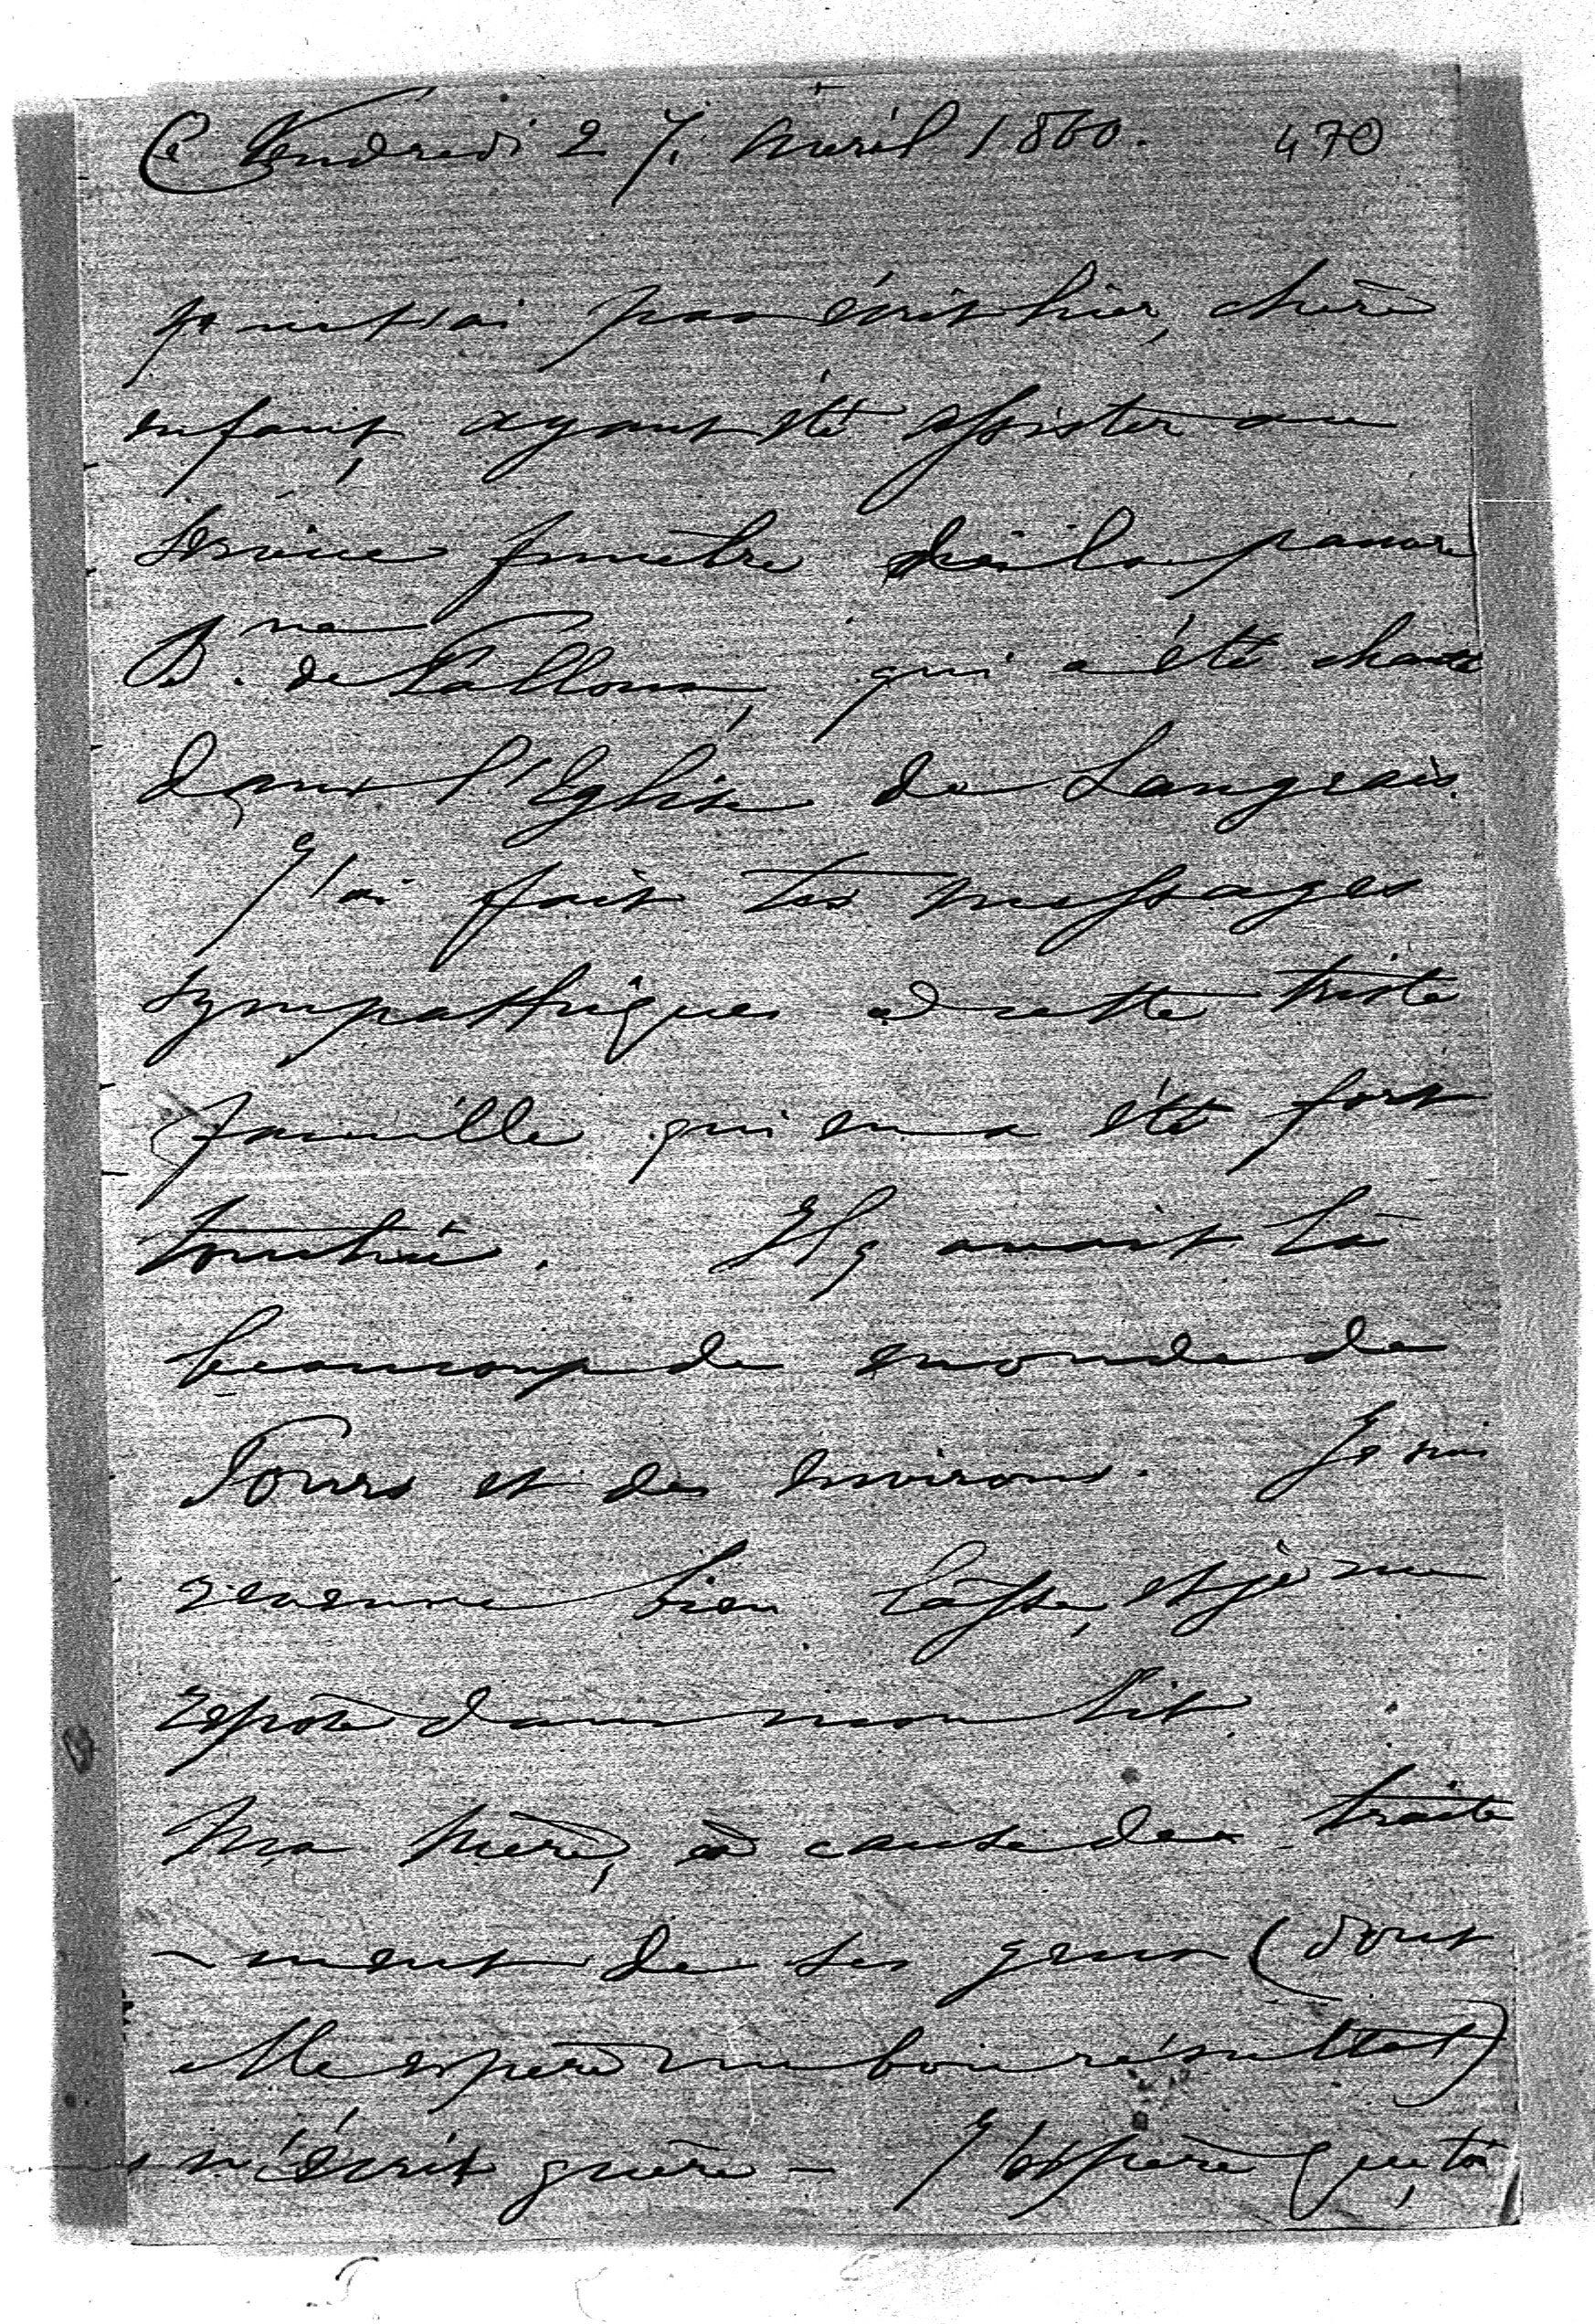 Ce Vendredi 27. Avril 1860. 470
Je ne t'ai pas écrit hier, chère
enfant, ayant été assister au
service funèbre de la pauvre
B.ne de qui a été chanté
dans l'Eglise de Langeais.
J'ai fait tes messages
sympathiques à cette triste
famille qui en a été fort
touchée. Il y avait là
beaucoup de monde de
Tours et des environs. Je suis
revenue bien lasse, et je me
repose dans mon lit.
Ma mère, à cause du traite
-ment de ses yeux (dont
elle espère un bon résultat)
n'écrit guère - J'espère que, toi